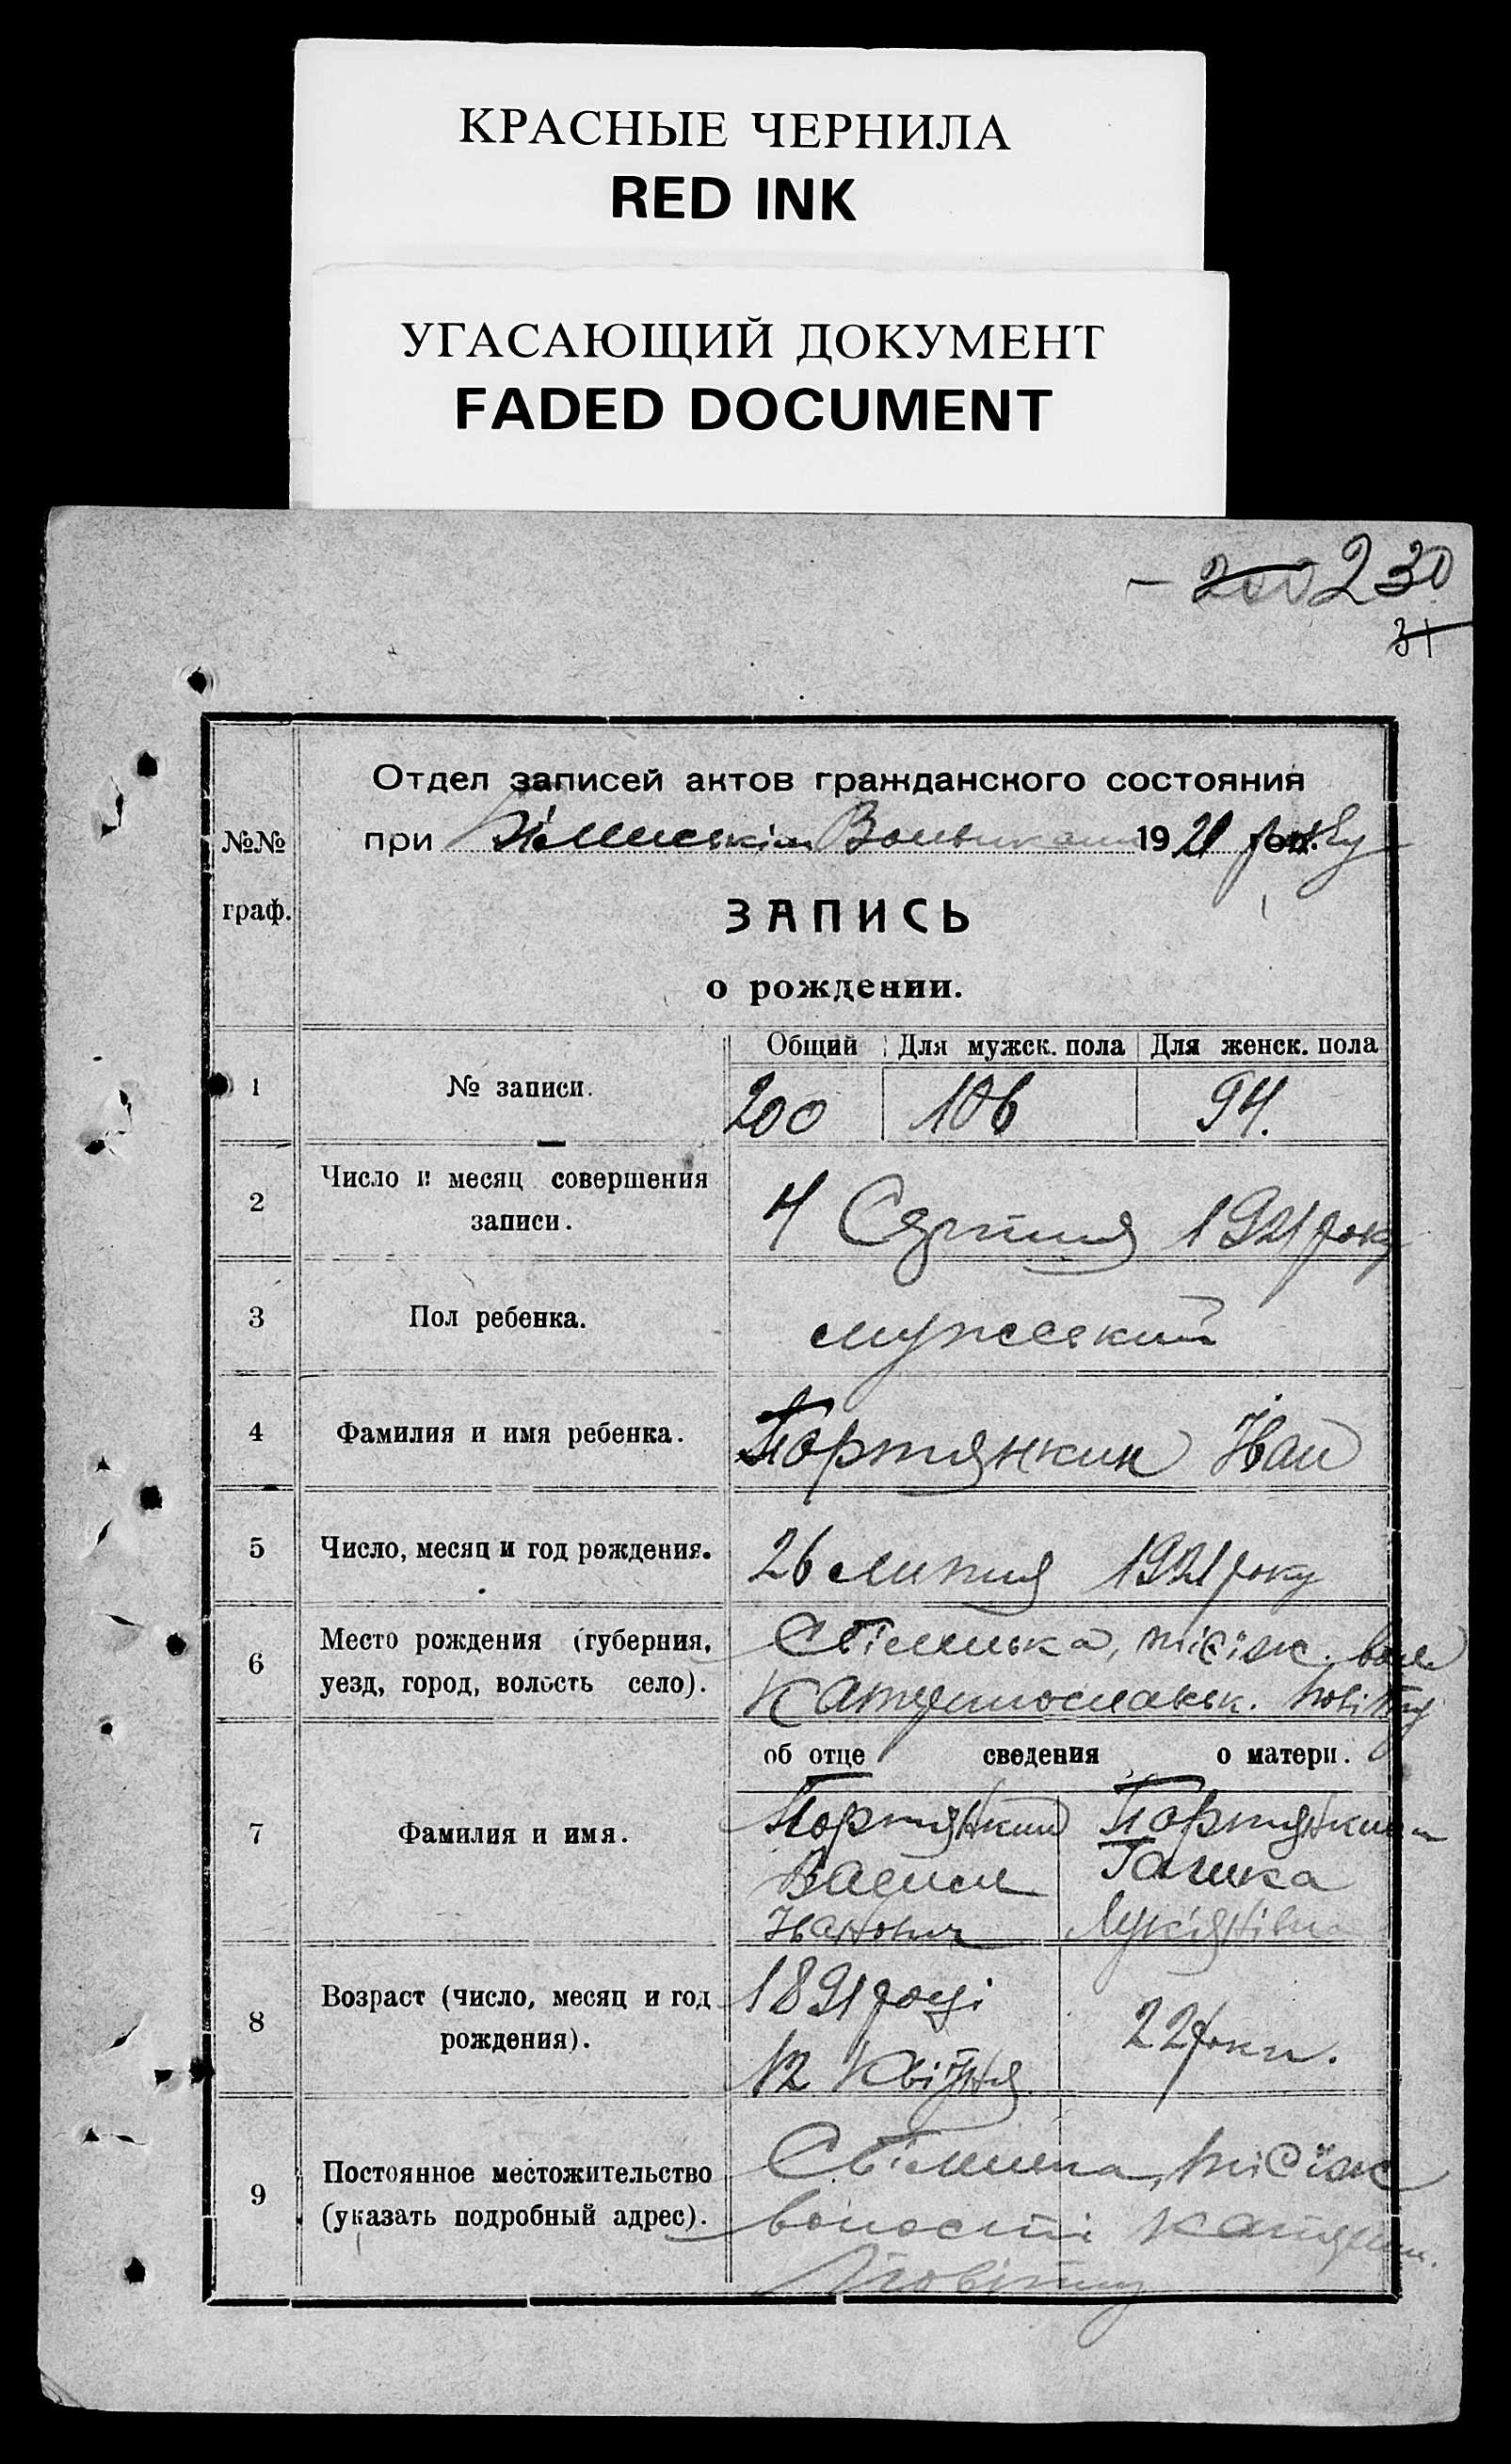 КРАСНЫЕ ЧЕРНИЛА
RED INK
УГАСАЮЩИЙ ДОКУМЕНТ
FADED DOCUMENT
200 230
31
Отдел записей актов гражданского состояния
№№ граф.
при 1921 року
ЗАПИСЬ
о рождении.
Общий Для мужск. пола Для женск. пола
1 № записи. 200 106 94.
2 Число и месяц совершения записи. 4 Серпня 1921 року
3 Пол ребенка. мужеский
4 Фамилия и имя ребенка. Портянкин Іван
5 Число, месяц и год рождения. 26 липня 1921 року
6 Место рождения (губерния, уезд, город, волость село).
Катеринославськ. повіту
об отце сведения о матери.
7 Фамилия и имя.
Портянкин Портянкина
Василь Галька
Іванович Лукіянівна
8 Возраст (число, месяц и год рождения).
1891 році
12 Квітня
22 роки.
9 Постоянное местожительство (указать подробный адрес).
волості Катерин.
Повіту